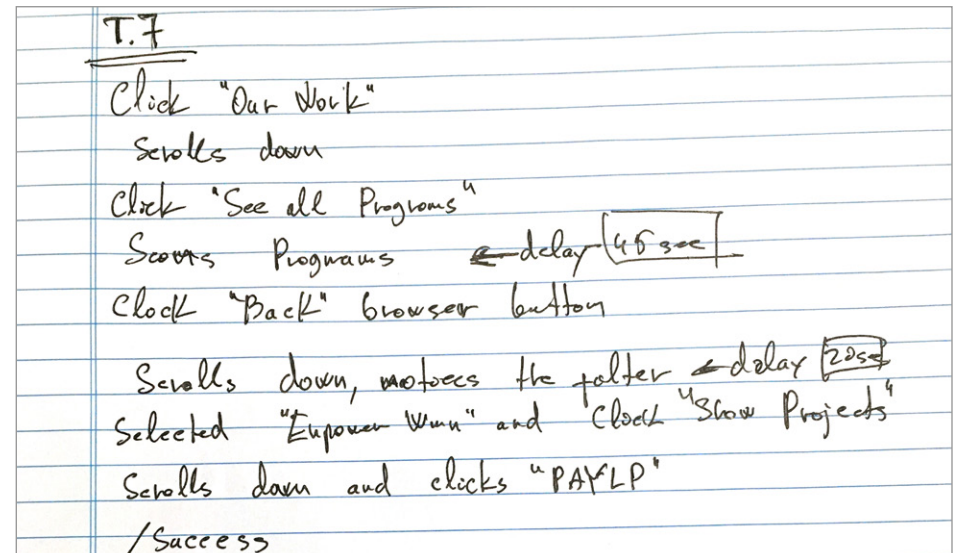 T.7
Click "Our Work"
Scrolls down
Click "See all Programs"
Scans Programs ← delay 45 sec
Click "Back" browser button
Scrolls down, notices the filter ← delay 20sec
Selected "Empower Wmn" and Click "Show Projects"
Scrolls down and clicks "PAYLP"
/Success